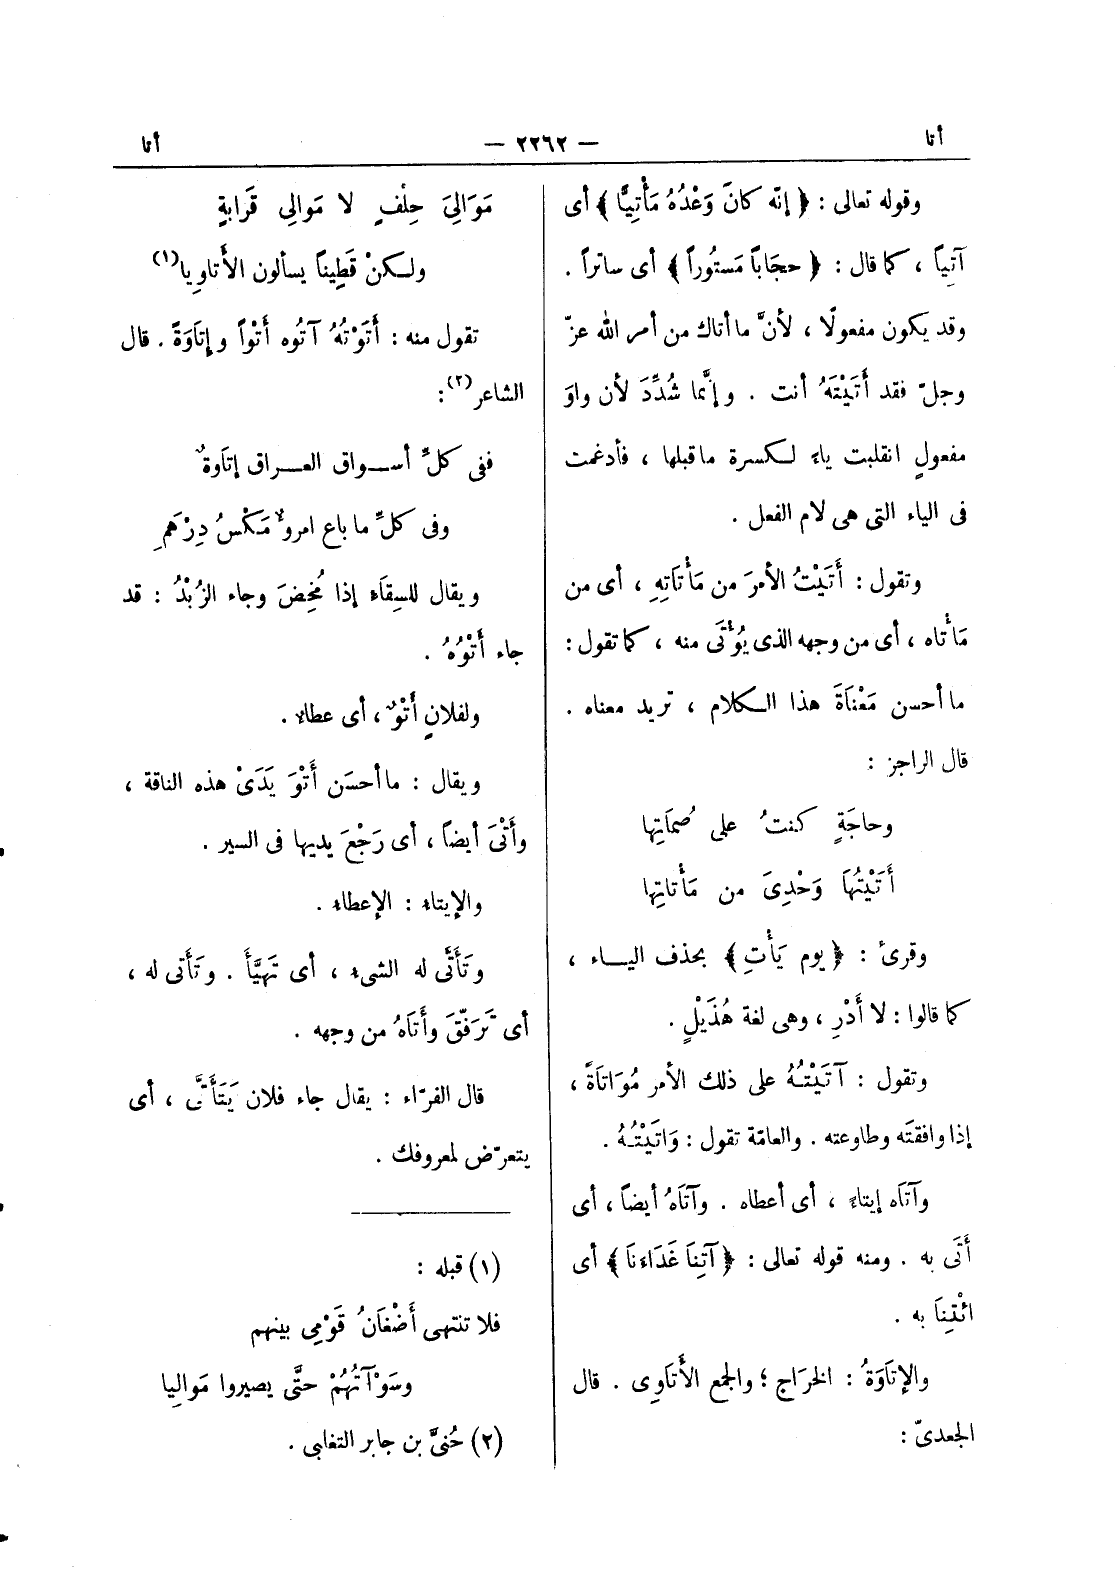 أتا — ٢٢٦٢ — أتا
وقوله تعالى : ﴿ إنّه كانَ وَعْدُهُ مَأْتِيًّا ﴾ أى
آتِياً ، كما قال : ﴿ حجَاباً مَستُوراً ﴾ أى ساتراً .
وقد يكون مفعولًا ، لأنَّ ما أتاك من أمر الله عزّ
وجلّ فقد أَتَيْتَهُ أنت . وإنَّما شُدِّدَ لأن واوَ
مفعولٍ انقلبت ياءً لكسرة ماقبلها ، فأدغمت
فى الياء التى هى لام الفعل .
وتقول : أَتَيْتُ الأمرَ من مَأْتَاتِهِ ، أى من
مَأْتاه ، أى من وجهه الذى يُؤْتَى منه ، كما تقول :
ما أحسن مَعْنَاةَ هذا الكلام ، تريد معناه .
قال الراجز :
وحاجَةٍ كنتُ على صُماَتِها
أَتَيْتُهَا وَحْدِىَ من مَأْتاتِها
وقرئ : ﴿ يوم يَأْتِ ﴾ بحذف اليـاء ،
كما قالوا : لا أَدْرِ ، وهى لغة هُذَيْلٍ .
وتقول : آتَيْتُهُ على ذلك الأمر مُوَاتَاةً ،
إذا وافقتَه وطاوعته . والعامّة تقول : وَاتَيْتُهُ .
وآتَاه إيتاءً ، أى أعطاه . وآتَاهُ أيضاً ، أى
أَتَى به . ومنه قوله تعالى : ﴿ آتِنَا غَدَاءَنَا ﴾ أى
ائْتِنَا به .
والإتَاوَةُ : الخرَاج ؛ والجمع الأَتَاوِى . قال
الجعدىّ :
مَوَالِىَ حِلْفٍ لا مَوالِى قَرَابةٍ
ولكنْ قَطِيناً يسألون الأَتاوِيا(١)
تقول منه : أَتَوْتُهُ آتُوه أَتْواً وإتَاوَةً . قال
الشاعر(٢) :
ففى كلِّ أسـواق العـراق إتَاوةٌ
وفى كلِّ ما باع امروٌ مَكْسُ دِرْهَمِ
ويقال للسِقَاءِ إذا مُخِضَ وجاء الزُبْدُ : قد
جاء أَتْوُهُ .
ولفلانٍ أَتْوٌ ، أى عطاء .
ويقال : ما أحسَن أَتْوَ يَدَىْ هذه الناقة ،
وأَتْىَ أيضاً ، أى رَجْعَ يديها فى السير .
والإيتاء : الإعطاء .
وتَأَتَّى له الشىء ، أى تَهَيَّأَ . وتَأَتى له ،
أى تَرَفّقَ وأَتَاهُ من وجهه .
قال الفرّاء : يقال جاء فلان يَتَأَتَّى ، أى
يتعرّض لمعروفك .
(١) قبله :
فلا تنتهى أَضْغَانُ قَوْمِى بينهم
وسَوْآتُهُمْ حتَّى يصيروا مَواليا
(٢) حُنىَّ بن جابر التغلبى .